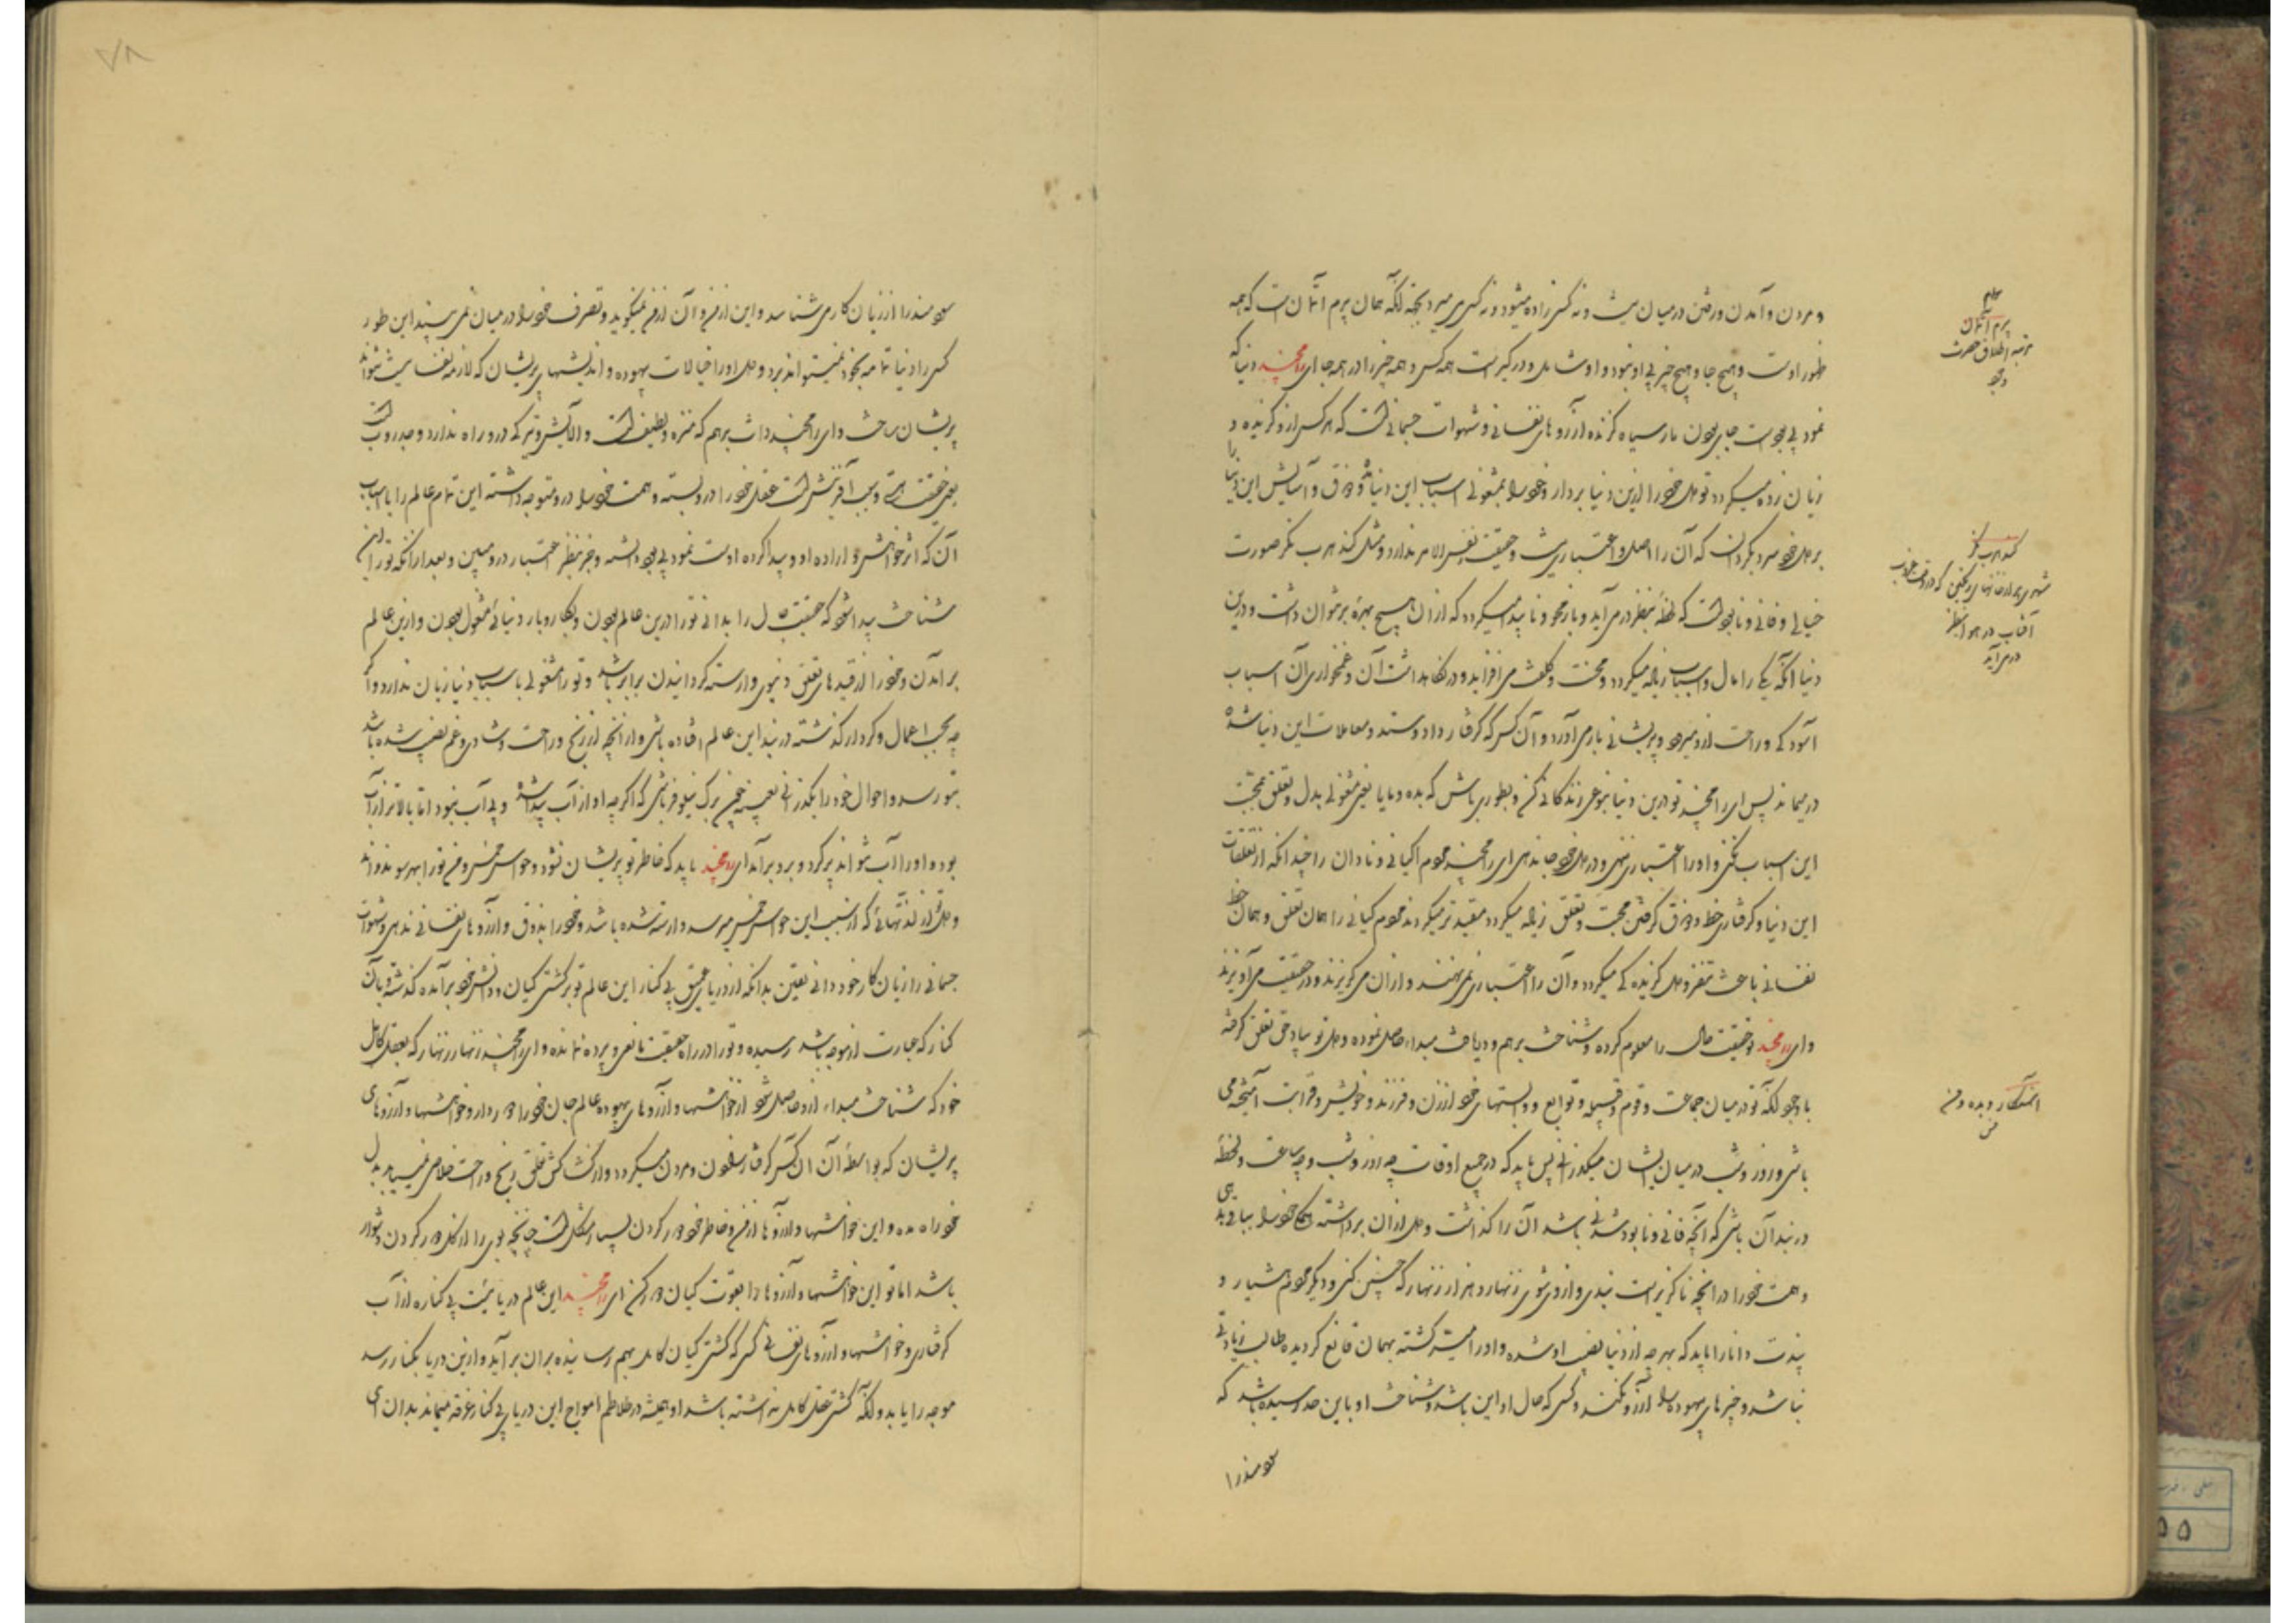 و مردن و آمدن و رفتن در میان نیست و نه کسی زاده میشود و نه کسی می میرد بجز آنکه همان پرم آتمان است که همه
ظهور اوست و هیچ جا و هیچ چیز بی او نبود و او شامل و درگیر است همه کس و همه چیز را در همه جا ای رامچند دنیا که
نمود بی بود است چون مار سیاه گزنده آرزوهای نفسانی و شهوات جسمانی است که هر کس از او گزیده و
زیان زده میگردد تو دل خود را ازین دنیا بردار و خود را بمشغولی اسباب این دنیا و ذوق و آسایش این دنیا را
بر دل خود سرد گردان که آن را اصل و اعتباری نیست و حقیقت نفس الامر ندارد و مثل گندهرب نگر صورت
خیالی و فانی و نابود است که لحظه بنظر در می آید و باز محو و ناپیدا میگردد که از آن هیچ بهره بر نتوان داشت و درین
دنیا آنکه یکی را مال و اسباب زیاده میگردد و محنت و کلفت می افزاید و در نگاهداشت آن و غمخواری آن اسباب
آسودگی و راحت ازو میرود و پریشانی بار می آورد و آن کس که گرفتار داد و ستد و معاملات این دنیا شده
در میماند پس ای رامچند تو درین دنیا بنوعی زندگانی کن و بطوری باش که بده و بیا یا بغیر مشغولی بدل و تعلق بمحبت
این اسباب نکنی و او را اعتباری ننهی و در دل خود جا ندهی ای رامچند مردم گیانی و نادان را چندانکه از تعلقات
این دنیا و گرفتاری حظ و ذوق گرفتن محبت و تعلق زیاده میگردد مقیدتر میگردند مردم گیانی را همان تعلق و همان حظ
نفسانی باعث تنفر و دل گزیدگی میگردد و آن را اعتباری نمی نهند و از آن می گریزند و در حقیقت می آویزند
و ای رامچند تو حقیقت حال را معلوم کرده و شناخت برهم و دریافت مبداء حاصل نموده و دل تو بیاد حق تعلق گرفته
با وجود آنکه تو در میان جماعت و قوم و قبیله و توابع و وابستهای خود از زن و فرزند و خویش و قرابت آمیخته می
باشی و روز و شب در میان ایشان میگذرانی پس باید که در جمیع اوقات چه روز و شب و چه ساعت و لحظه
در بند آن باشی که آنچه فانی و نابود شدنی باشد آن را گذاشت و دل از آن برداشته
و همت خود را در آنچه ناگزیر است بندی و از وی شوی زنهار و هزار زنهار که چنین کنی و دیگر مردم هشیار و
پندت دانا را باید که بهر چه از دنیا نصیب او شده و او را میسر گشته بهمان قانع گردیده طالب زیادتی
نباشد و چیزهای بیهوده را آرزو نکند و کسی که حال او این باشد و شناخت او باین حد رسیده باشد که
سودمند را
پرم آتمان
مرتبه اطلاق حضرت
وجود
گندهرب نگر
آفتاب در هوا بنظر
در می آید
سودمند را از زیان کار می شناسد و این از من و آن از من نمیگوید و تصرف خود را در میان نمی بیند این طور
کسی را دنیا تمامه بخود نمیتواند برد و دل او را خیالات بیهوده و اندیشهای پریشان که لازمه نفس است نمیتواند
پریشان ساخت و ای رامچند ذات برهم که منزه و لطیف است و آلایش و تیرگی درو راه ندارد و
یعنی حقیقت هستی و سبب آفرینش است عقل خود را درو بسته و همت خود را درو متوجه داشته این تمام عالم را با اسباب
آن که اثر خواهش و اراده او و پیدا کرده اوست نمود بی بود دانسته و جز بنظر اعتبار درو مبین و بعد از آنکه تو را این
شناخت پیدا شود که حقیقت حال را بدانی تو را درین عالم بودن و بکار و بار دنیائی مشغول بودن و ازین عالم
بر آمدن و خود را از قیدهای تعلق دنیوی وارسته گردانیدن برابر باشد و تو را مشغولی باسباب دنیا زیان ندارد و اگر
چه بحسب اعمال و کردار گذشته در بند این عالم افتاده باشی و از آنچه از رنج و راحت و شادی و غم نصیب شده باشد
بتو رسد و احوال خود را بگذرانی بعینه چون برگ نیلوفر باشی که اگر چه او از آب پیدا شده و بی آب نبود اما بالاتر از آب
بوده و او را آب نتواند تر کرد و برو برآمد ای رامچند باید که خاطر تو پریشان نشود و حواس خمس و من تو را بهر سو ندواند
و دل تو از لذتهائی که از سبب این حواس خمس میرسد وارسته شده باشد و خود را بذوق و آرزوهای نفسانی ندهی و شهوات
جسمانی را زیان کار خود دانی یقین بدانکه از دریای عمیق بی کنار این عالم تو بر کشتی گیان و دانش خود برآمده گذشته و بآن
کنار که عبارت از موجه باشد رسیده و تو را در راه حقیقت مانعی و پرده نمانده و ای رامچند زنهار زنهار که بعقل کامل
خود که شناخت مبداء ازو حاصل شود از خواهشها و آرزوهای بیهوده عالم جان خود را دور دار و خواهشها و آرزوهای
پریشان که بواسطه آن آن کس گرفتار زادن و مردن میگردد و از کشاکش تعلق رنج و راحت خلاص نمییابد بدل
خود راه مده و این خواهشها و آرزوها از من و خاطر خود دور کردن بسیار مشکل است چنانچه بوی را از گل دور کردن دشوار
باشد اما تو این خواهشها و آرزوها را بقوت گیان دور کن ای رامچند این عالم دریائیست بی کناره از آب
گرفتاری و خواهشها و آرزوهای نفسانی کسی که کشتی گیان کامل بهم رسانیده بران برآید و ازین دریا بکنار رسد
موجه را یابد و آنکه کشتی عقل کامل نداشته باشد او همیشه در تلاطم امواج این دریای بی کنار غرقه میماند بدان ای